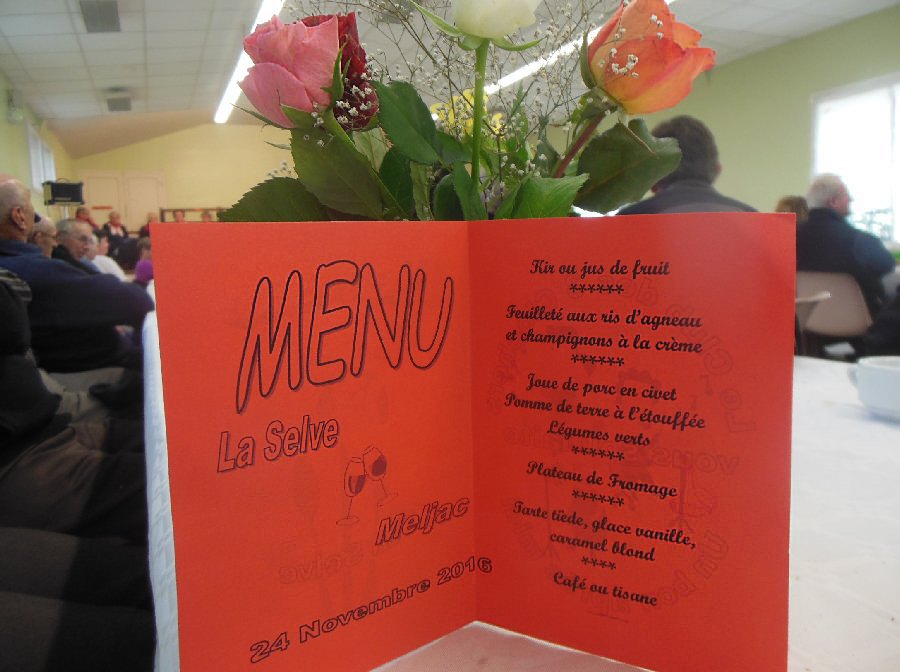 MENU
La Selve
Meljac
24 Novembre 2016
Kir ou jus de fruit
******
Feuilleté aux ris d'agneau
et champignons à la crème
******
Joue de porc en civet
Pomme de terre à l'étouffée
Légumes verts
******
Plateau de Fromage
******
Tarte tïède, glace vanille,
caramel blond
****
Café ou tisane